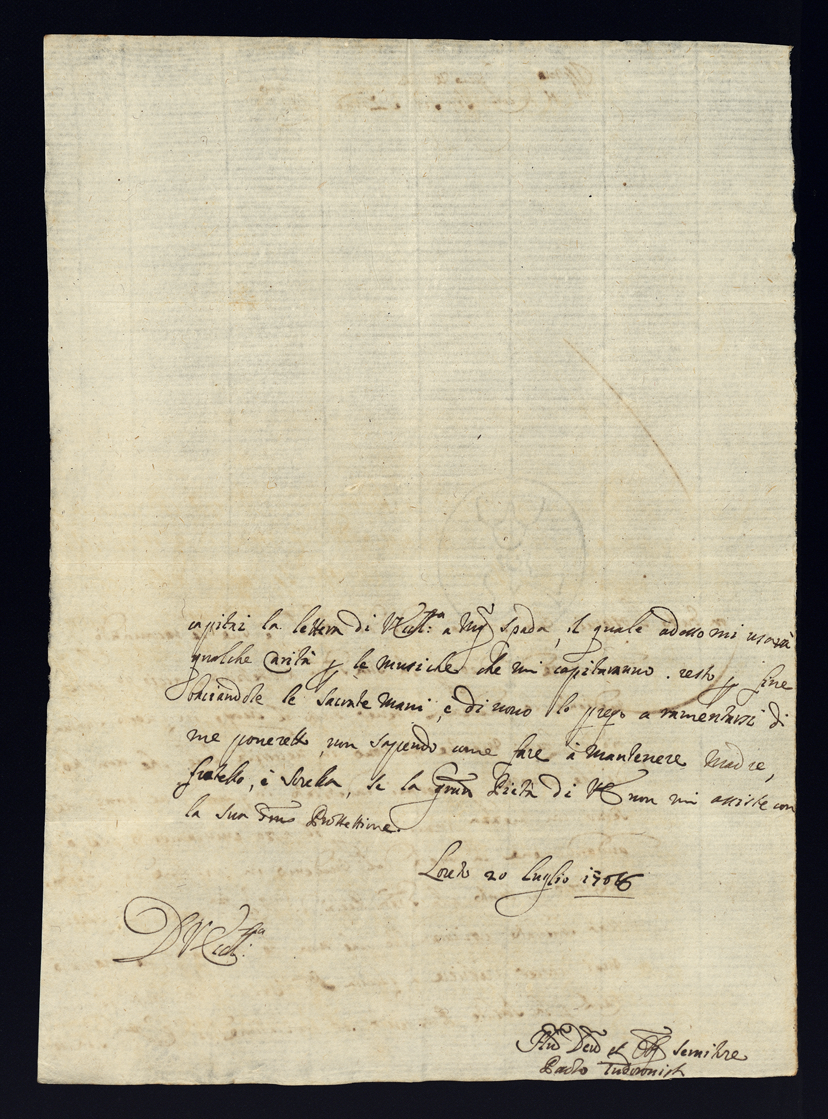 capitai la lettera di V Ecc.ll:za a Mg.r Spada, il quale adesso mi userà
qualche Carità p le musiche che mi capitaranno. resto p fine
baciandole le sacrate mani, e di novo lo prego a ramentarsi di
me poveretto, non sapendo come fare à mantenere Madre,
fratello, è Sorella, se la Gran Pietà di VE non mi assiste con
la sua Prottettione.
Loreto 20 luglio 1706
D V Ecc.ll:za
Hu.o Dev.o et Obb servitore
Paolo